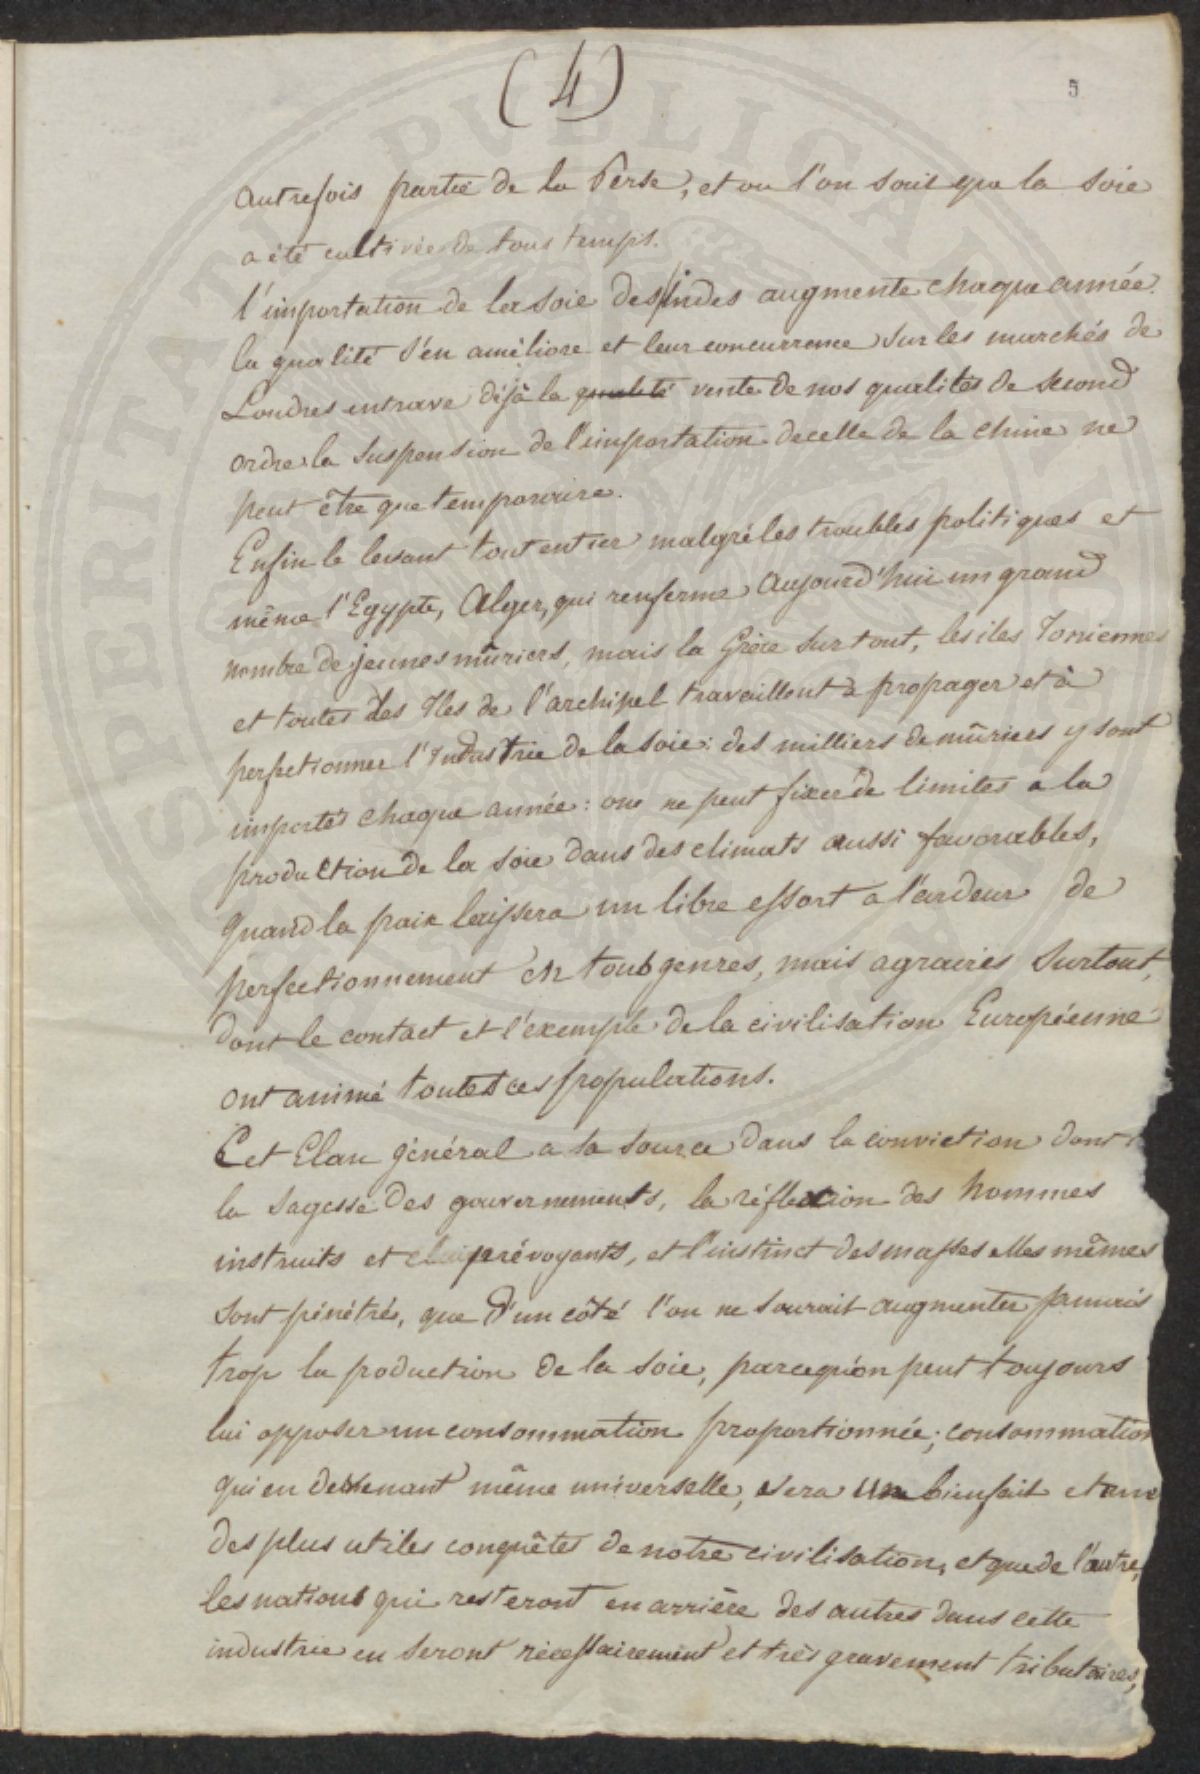 (4)
5
autrefois partie de la Perse, et ou l'on sait que la soie
a été cultivée de tous temps.
l'importation de la soie des indes augmente chaque année.
la qualité s'en améliore et leur concurrence sur les marchés de
Londres entrave déjà la qualité vente de nos qualités de second
ordre la suspension de l'importation de celle de la chine ne
peut être que temporaire.
Enfin le levant tout entier malgré les troubles politiques et
même l'Egypte, Alger, qui renferme aujourd'hui un grand
nombre de jeunes mûriers, mais la Grèce surtout, les iles Ioniennes
et toutes les Iles de l'archipel travaillent à propager et à
perfectionner l'Industrie de la soie: des milliers de mûriers y sont
importés chaque année: on ne peut fixer de limites a la
production de la soie dans des climats aussi favorables,
quand la paix laissera un libre essort a l'ardeur de
perfectionnement en tous genres, mais agraires surtout,
dont le contact et l'exemple de la civilisation Européenne
ont animé toutes ces populations.
Cet Elan général a sa source dans la conviction dont
la sagesse des gouvernements, la réflexion des hommes
instruits et prévoyants, et l'instinct des masses elles mêmes
sont pénétrés, que d'un côté l'on ne saurait augmenter jamais
trop la production de la soie, parcequ'on peut toujours
lui opposer un consommation proportionnée; consommation
qui en devenant même universelle, sera un bienfait et une
des plus utiles conquêtes de notre civilisation, et que de l'autre,
les nations qui resteront en arrière des autres dans cette
industrie en seront nécessairement et très gravement tributaires,
PERITATI PVBLICAE